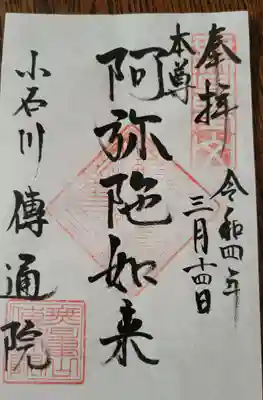 奉拝
令和四年
三月十四日
本尊
阿弥陀如来
小石川 傳通院